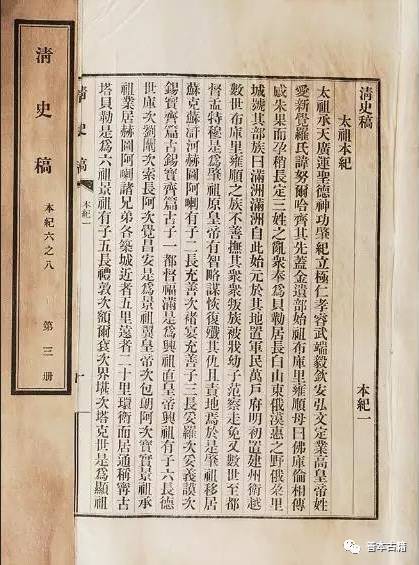 清史稿
本紀六之八
第三册
清史稿
太祖本紀
本紀一
太祖承天廣運聖德神功肇紀立極仁孝睿武端毅欽安弘文定業高皇帝姓
愛新覺羅氏諱努爾哈齊其先蓋金遺部始祖布庫里雍順母曰佛庫倫相傳
感朱果而孕稍長定三姓之亂衆奉爲貝勒居長白山東俄漠惠之野俄朶里
城號其部族曰滿洲滿洲自此始元於其地置軍民萬戶府明初置建州衛越
數世布庫里雍順之族不善撫其衆衆叛族被戕幼子范察走免又數世至都
督孟特穆是爲肇祖原皇帝有智略謀恢復殲其仇且責地焉於是肇祖移居
蘇克蘇滸河赫圖阿喇有子二長充善次褚宴充善子三長妥羅次妥義謨次
錫寶齊篇古錫寶齊篇古子一都督福滿是爲興祖直皇帝興祖有子六長德
世庫次劉闡次索長阿次覺昌安是爲景祖翼皇帝次包朗阿次寶實景祖承
祖業居赫圖阿喇諸兄弟各築城近者五里遠者二十里環衛而居通稱寧古
塔貝勒是爲六祖景祖有子五長禮敦次額爾袞次界堪次塔克世是爲顯祖
清史稿
本紀一
善本古籍